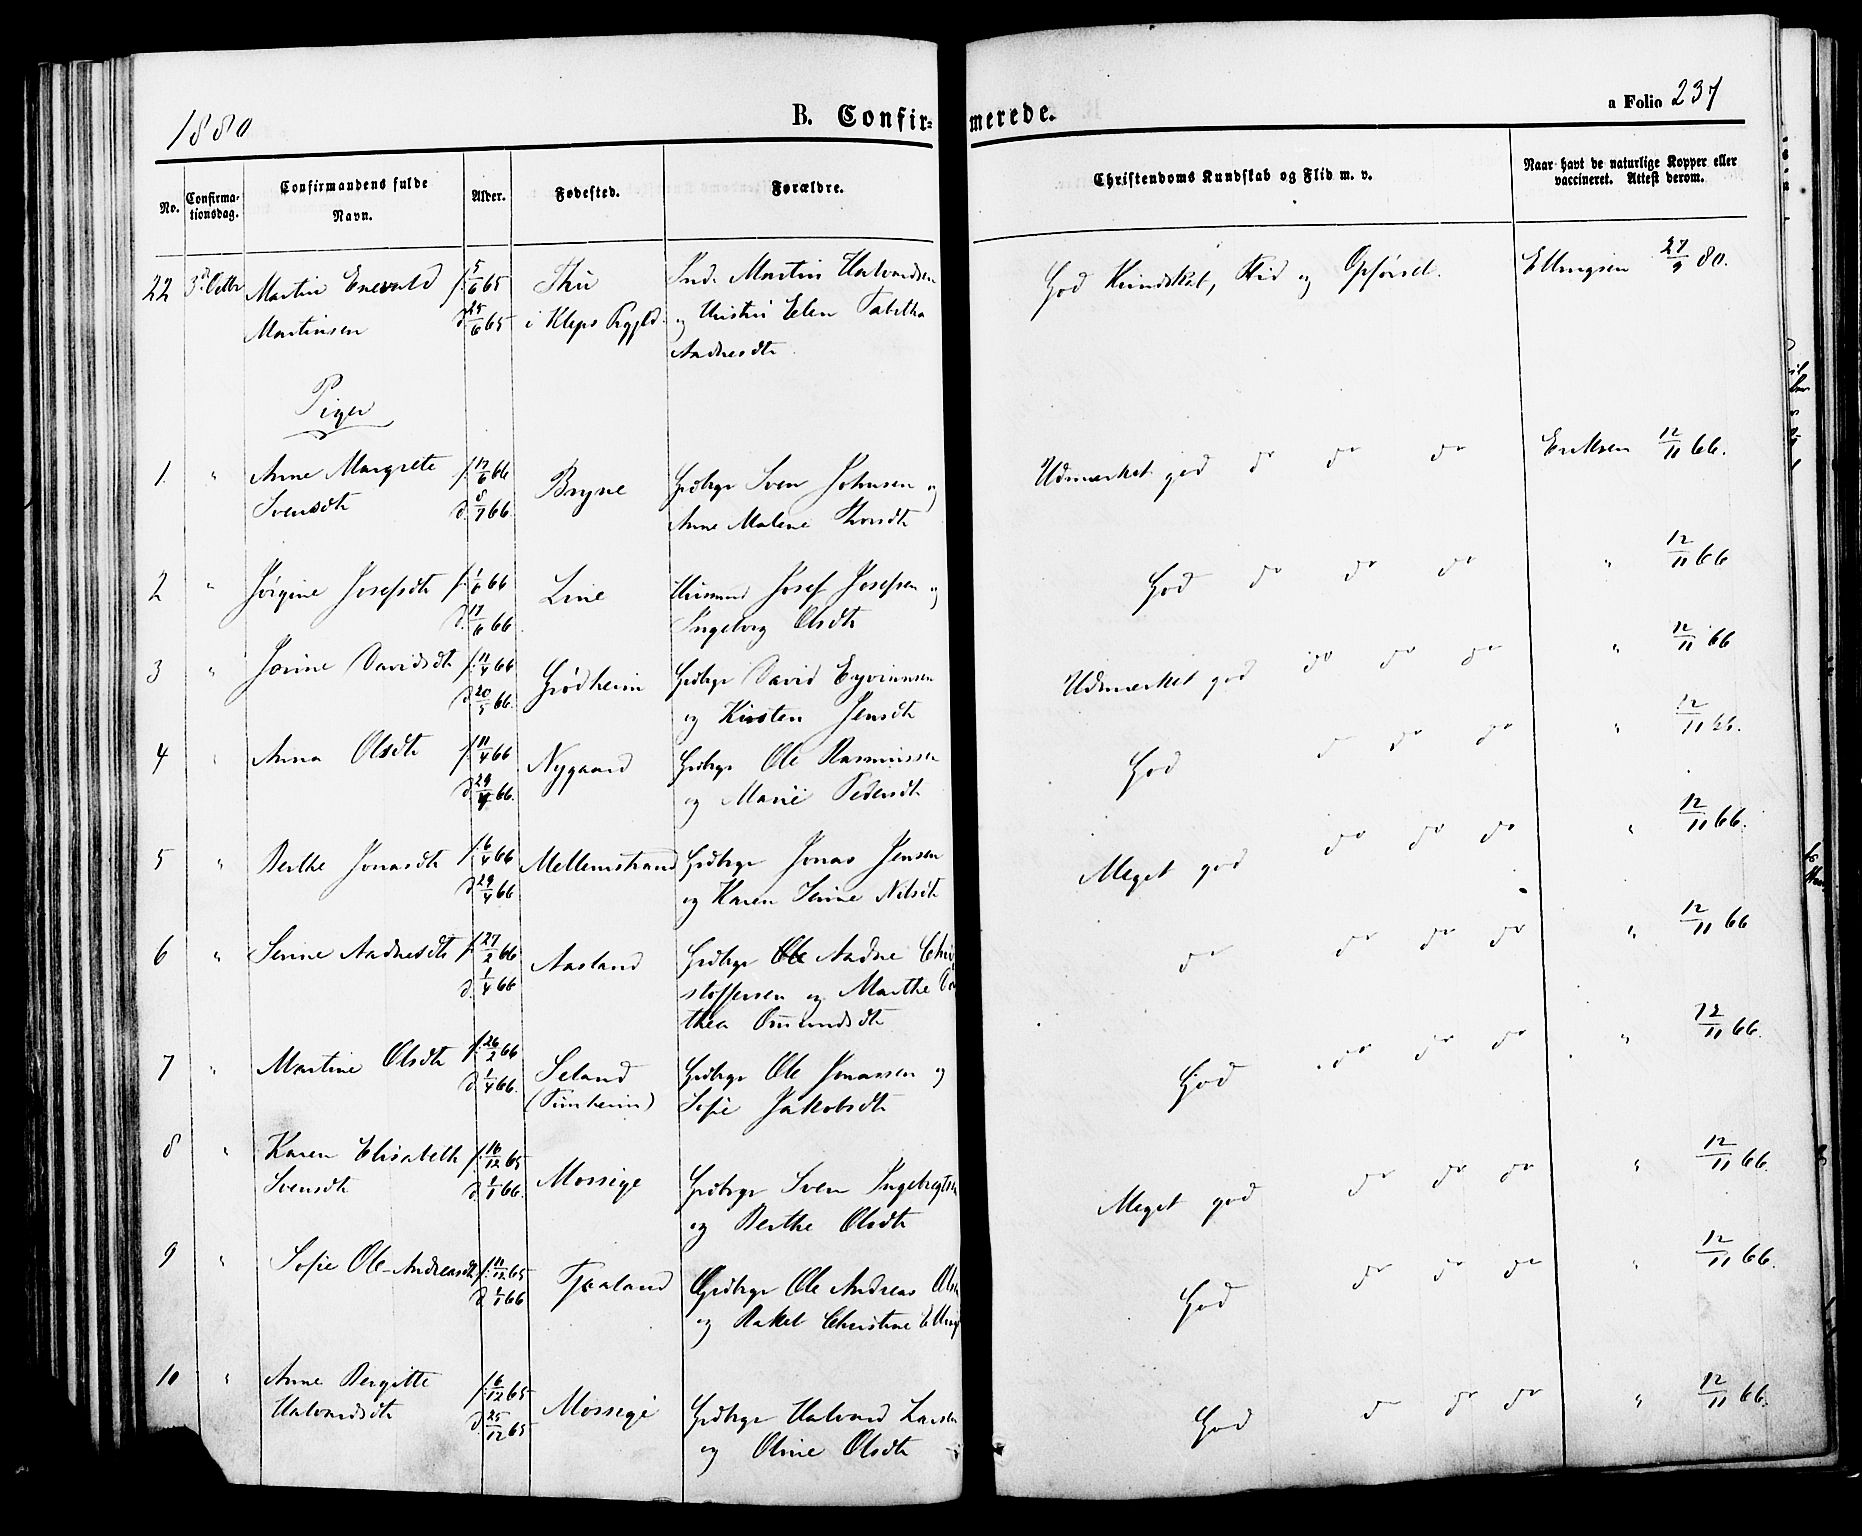 1880
B. Confirmerede.
a Folio 237
No.
Confirmationsdag.
Confirmandens fulde Navn.
Alder.
Fødested.
Forældre.
Christendoms Kundskab og Flid m. v.
Naar havt de naturlige Kopper eller vaccineret. Attest derom.
22 3d Octbr Martin Enevald f. 5/6 65 Thu Ind. Martin Halvardsen God Kundskab, Flid og Opførsel. Ellingsen 27/9 80.
Martinsen d. 25/6 65 i Kleps Prgjld. og Hustru Elen Tabitha
Andresdtr
Piger
1. " Anne Margrete f. 17/6 66 Bryne Grdbrgr Sven Johnsen og Udmærket god do do do Eriksen 12/11 66.
Svensdtr d. 8/7 66. Anne Malene
2 " Jørgine Josefsdtr f. 1/6 66 Line Husmand Josef Josefsen og God do do do " 12/11 66
d. 17/6 66 Ingeborg Olsdtr
3 " Jorine Davidsdtr f. 11/4 66 Grødheim Grdbrgr David Eyvinnsen Udmærket god do do do " 12/11 66
d. 20/5 66. og Kirsten Jensdtr
4 " Anna Olsdtr f. 11/4 66 Nygaard Grdbrgr Ole Rasmussen God do do do " 12/11 66.
d. 29/4 66. og Marie Pedersdtr
5 " Berthe Jonasdtr f. 6/4 66 Mellemstrand Grdbrgr Jonas Jensen Meget god do do do " 12/11 66.
d. 29/4 66 og Karen Serine Nilsdtr
6 " Serine Aadnesdtr f. 27/2 66 Aasland Grdbrgr Ole Aadne Chri do do do do " 12/11 66
d. 1/4 66 stoffersen og Marthe Do
thea Omundsdtr
7 " Martine Olsdtr f. 26/2 66 Seland Grdbrgr Ole Jonassen og God do do do " 12/11 66.
d. 1/4 66. (Timheim) Sofie Jakobsdtr
8 " Karen Elisabeth f. 16/12 65 Mossige Grdbrgr Sven Ingebregtsen Meget god do do do " 12/11 66.
Svensdtr d. 1/1 66. og Berthe Olsdtr
9 " Sofie Ole-Andreasdtr f. 11/12 65 Tjaaland Grdbrgr Ole Andreas Olse God do do do " 12/11 66.
d. 1/1 66 og Rakel Christine Elling
10 " Anne Bergitte f. 6/12 65 Mossige Grdbrgr Halvard Larsen God do do do " 12/11 66.
Halvardsdtr d. 25/12 65 og Oline Olsdtr